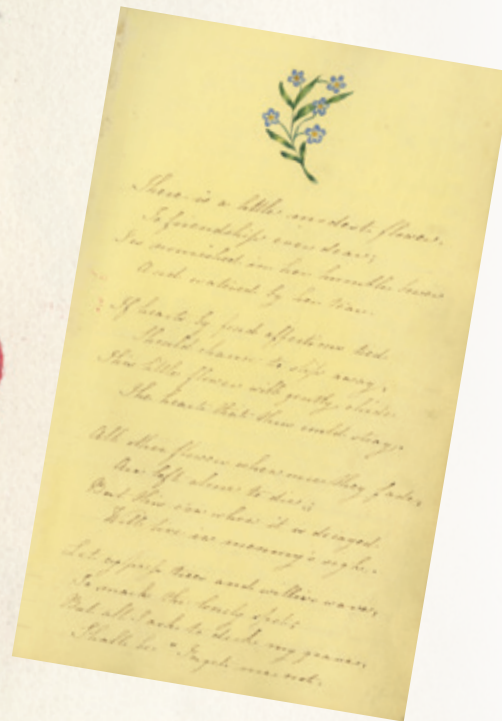 There is a little modest flower,
To friendship ever dear;
Tis nourished in her humble bower
And watered by her tear.
If hearts by fond affections tied
Should chance to slip away,
This little flower will gently chide
The hearts that thus could stray.
All other flowers when once they fade,
Are left alone to die;
But this one when it is decayed
Will live in memory's sigh.
Let cypress trees and willows wave,
To mark the lonely spot;
But all I ask to deck my grave,
Shall be "Forget me not.